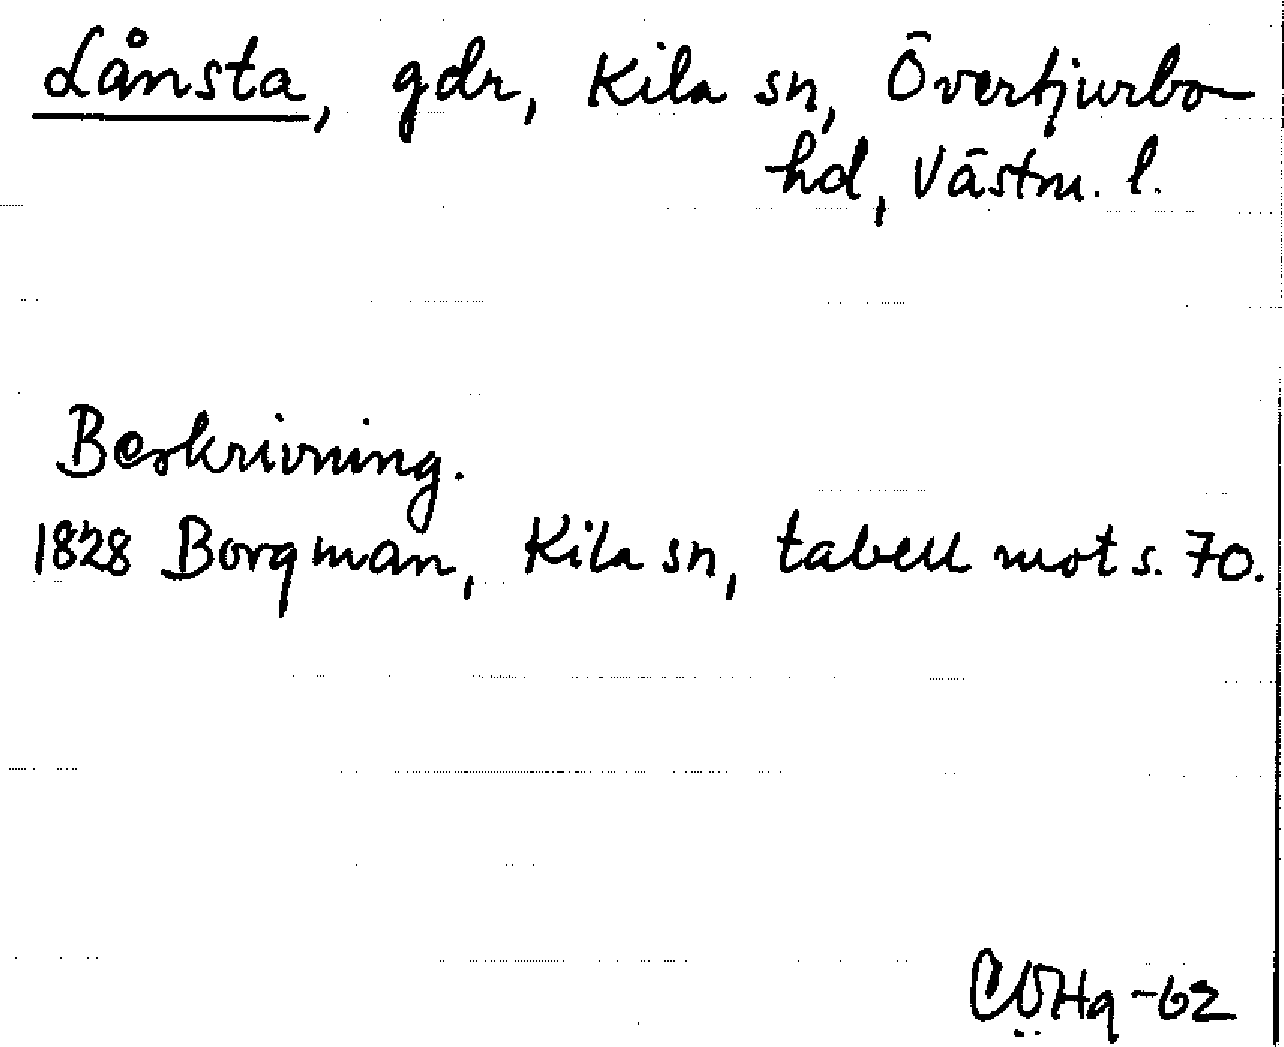 Lånsta, gdr, Kila sn, Övertjurbo
hd, Västm. l.
Beskrivning.
1828 Borgman, Kila sn, tabell mot s. 70.
-62